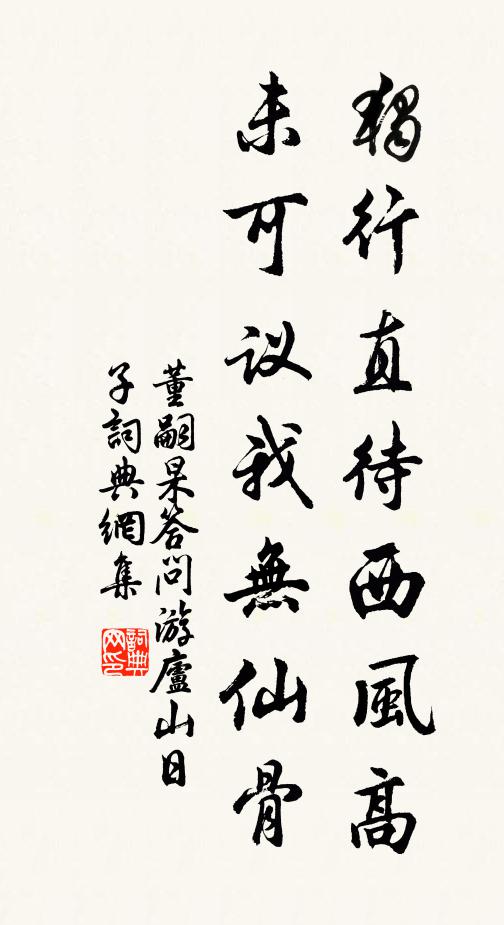 獨行直待西風高
未可议我無仙骨
董嗣杲答問游廬山日
子詞典網集
詞典网印